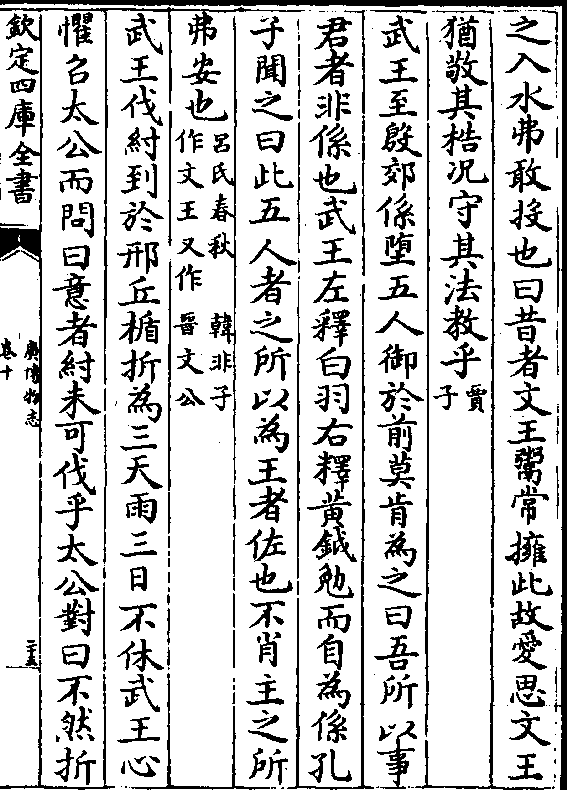 之入水弗敢投也曰昔者文王鬻常擁此故愛思文王
猶敬其梏况守其法教乎賈子
武王至殷郊係墮五人御於前莫肯為之曰吾所以事
君者非係也武王左釋白羽右釋黃鉞勉而自為係孔
子聞之曰此五人者之所以為王者佐也不肖主之所
弗安也吕氏春秋 韓非子
作文王又作 晉文公
武王伐紂到於邢丘楯折為三天雨三日不休武王心
懼召太公而問曰意者紂未可伐乎太公對曰不然折
欽定四庫全書
廣博物志
卷十
二十五